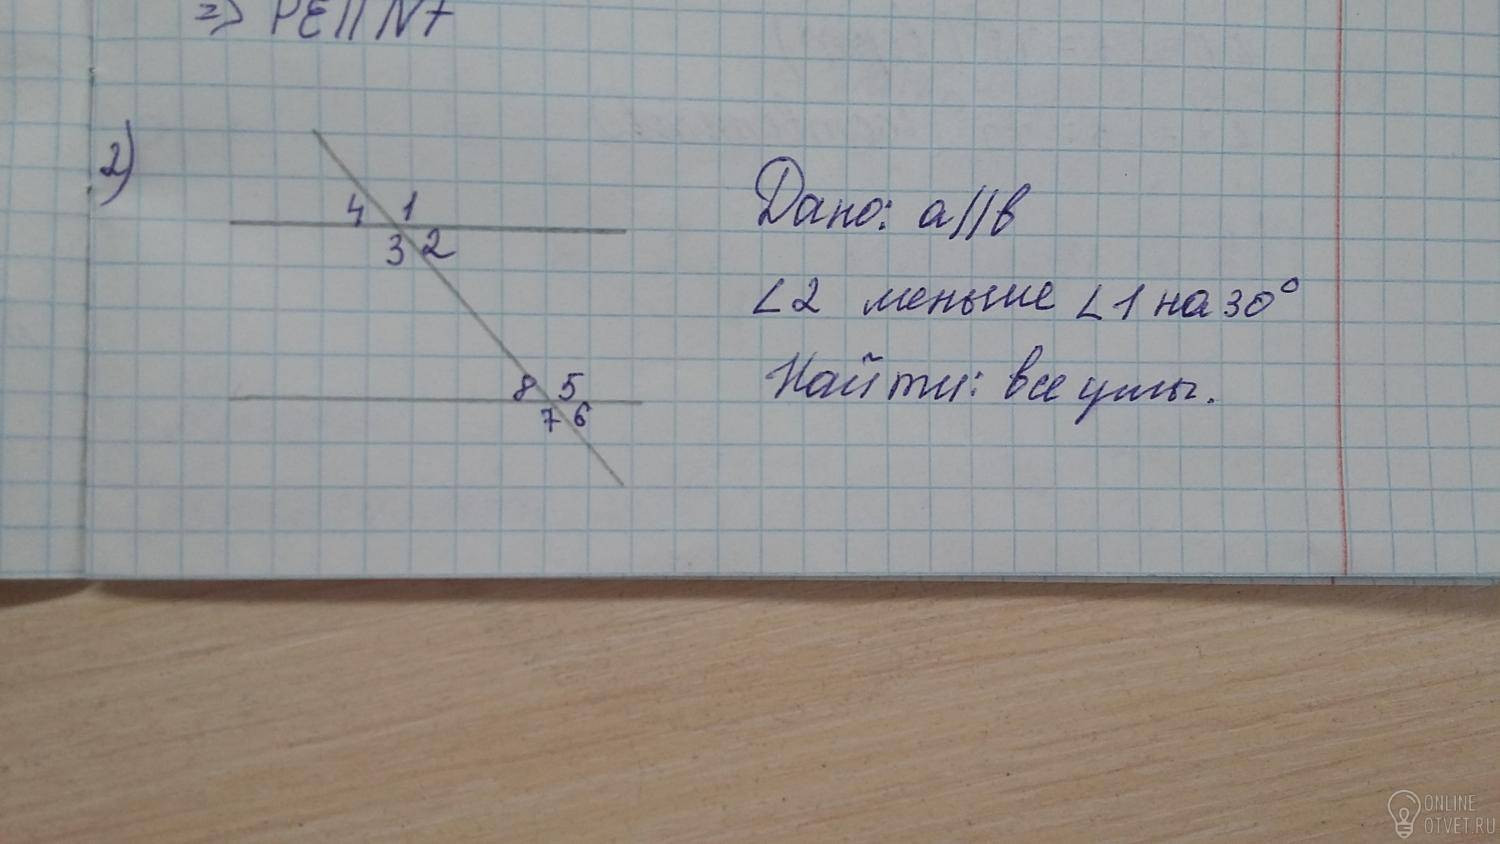 => PE || NF
2)
4 1
3 2
8 5
7 6
Дано: a//b
∠2 меньше ∠1 на 30°
Найти: все углы.
ONLINE
OTVET.RU